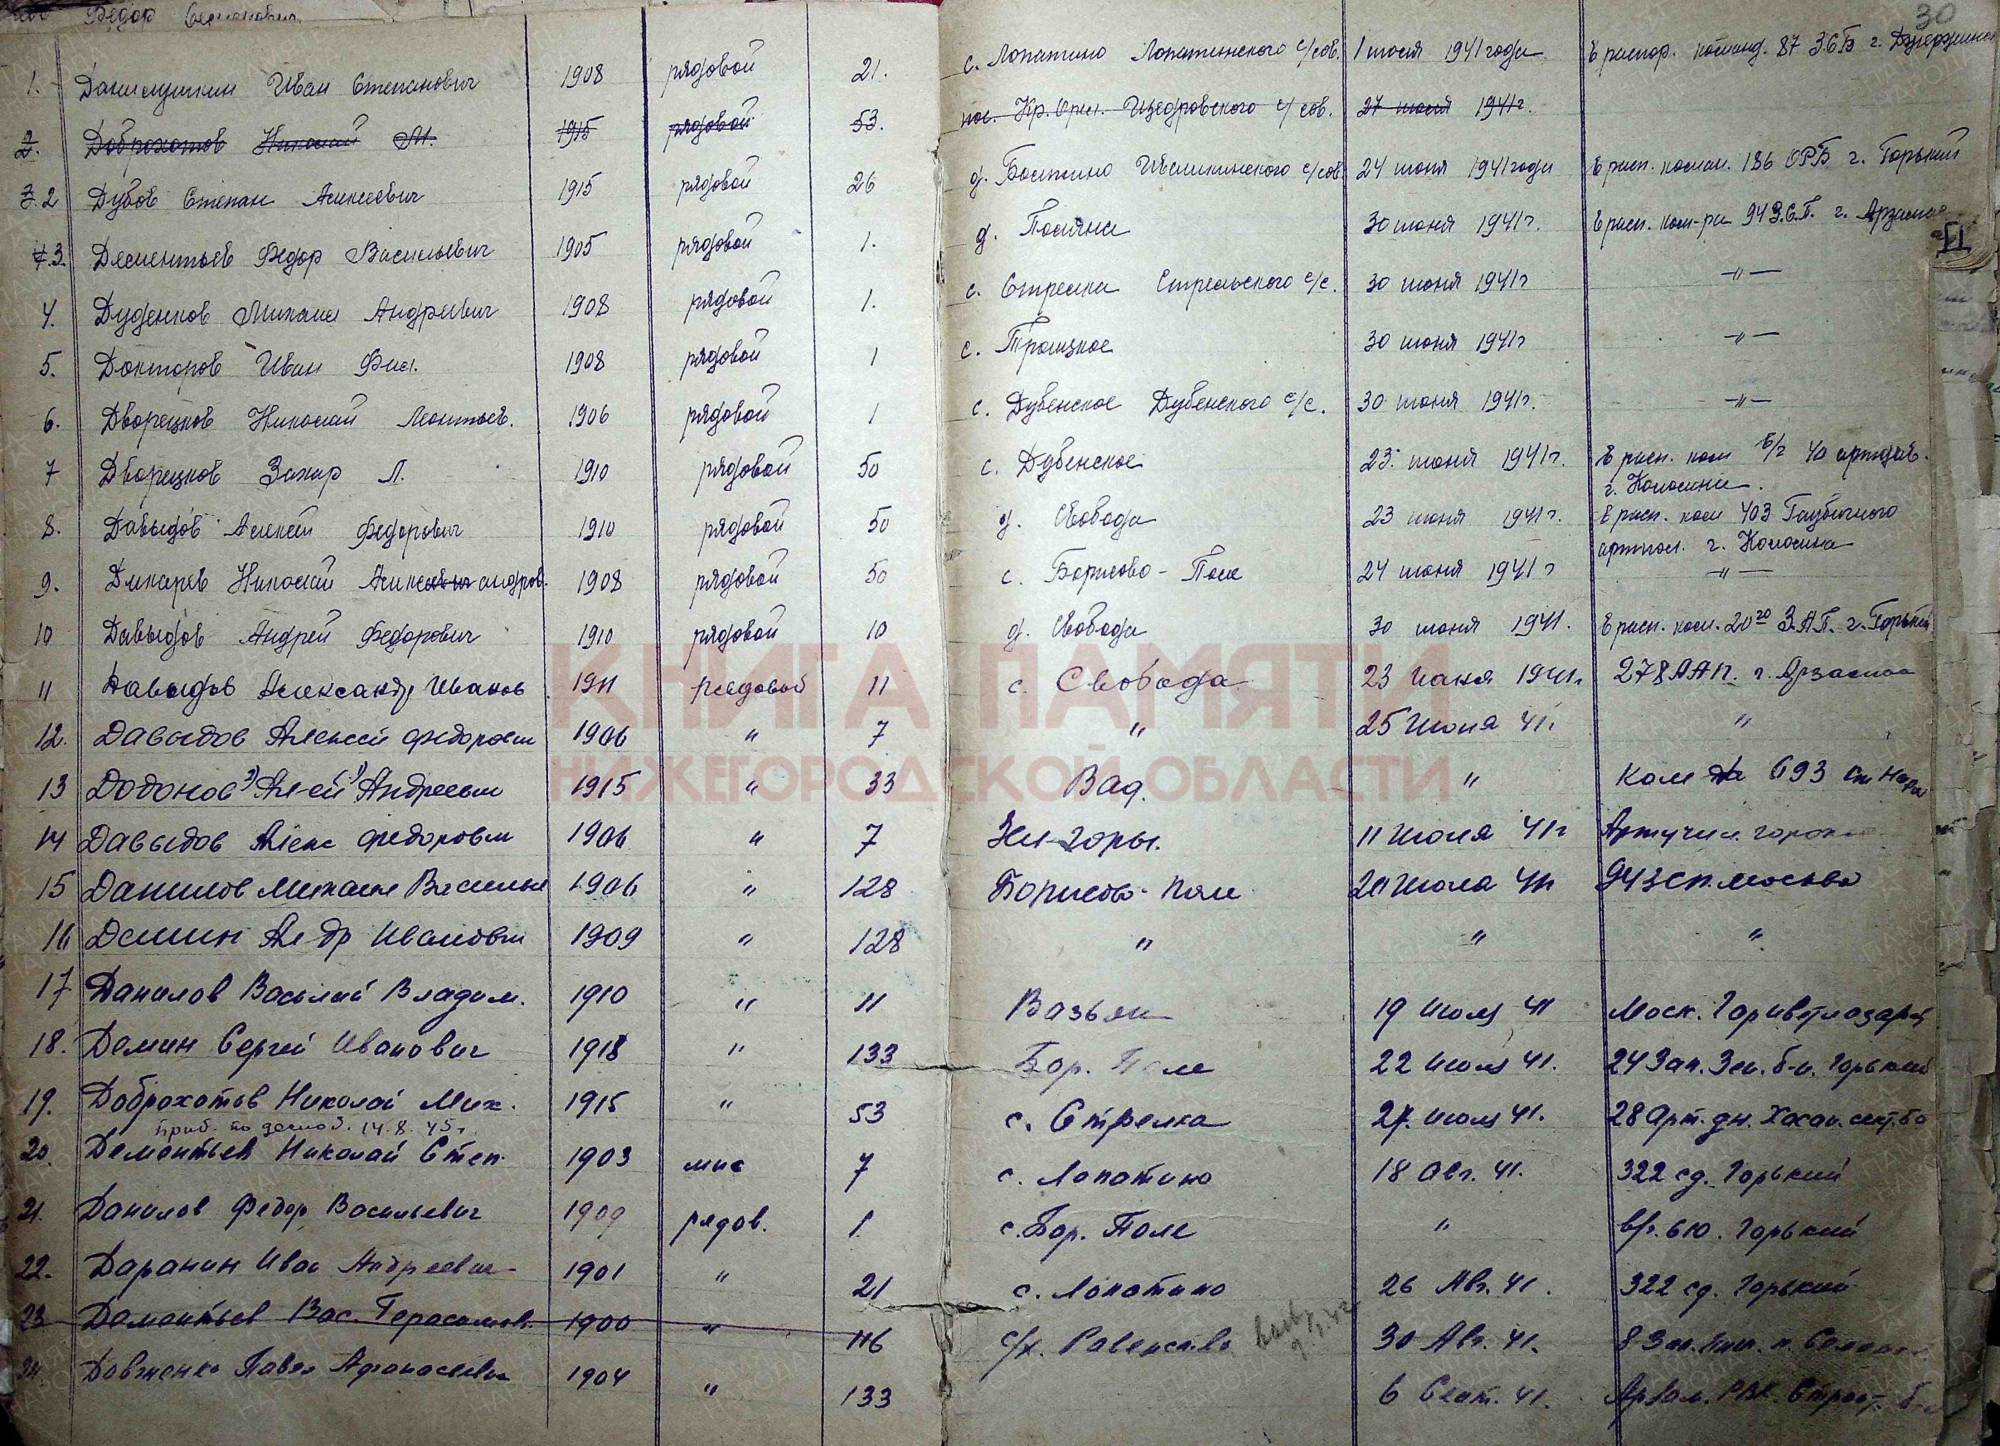 Федор
30
1. Данилушкин Иван Степанович 1908 рядовой 21. с. Лопатино Лопатинского с/сов. 1 июля 1941 года В распор. команд. 87 З.С.Б г.
2. Доброхотов Николай М. 1915 рядовой 53. с/сов. 27 июля 1941г.
3. 2 Дубов Степан Алексеевич 1915 рядовой 26 д. с/сов 24 июня 1941 года В расп. коман. 186 ОРБ г. Горький
4. 3. Дементьев Федор Васильевич 1905 рядовой 1. д. Поляна 30 июня 1941г. В расп. ком-ра 94 З.С.П. г. Арзамас
4. Дуденков Михаил Андреевич 1908 рядовой 1. с. Стрелка Стрельского с/с. 30 июня 1941г —"—
5. Докторов Иван Фил. 1908 рядовой 1 с. Троицкое 30 июня 1941г —"—
6. Дворецков Николай Леонтьев. 1906 рядовой 1 с. Дубенское Дубенского с/с. 30 июня 1941г. —"—
7 Дворецков Захар Л. 1910 рядовой 50 с. Дубенское 23. июня 1941г. В расп. ком в/г 40 артдив.
8. Давыдов Алексей Федорович 1910 рядовой 50 д. Свобода 23 июня 1941г. В расп. ком 403 Гаубичного
артпол. г.
9. Дикарев Николай Александров. 1908 рядовой 50 с. Борисово - Поле 24 июня 1941г —"—
10 Давыдов Андрей Федорович 1910 рядовой 10 д. Свобода 30 июня 1941. В расп. ком. 20го З.А.П. г. Горький
11 Давыдов Александр Иванов 1911 рядовой 11 с. Свобода 23 Июня 1941г 278 ААП. г. Арзамас
12. Давыдов Алексей Федоров 1906 " 7 " 25 Июня 41г. "
КНИГА ПАМЯТИ
НИЖЕГОРОДСКОЙ ОБЛАСТИ
13 Додонов Ал-ей Андреевич 1915 " 33 Вад. " 693
14 Давыдов Алекс Федорович 1906 " 7 Зел-Горы. 11 Июля 41г
15 Данилов Михаил Василье 1906 " 128 Борисово-Поле 20 Июля 41г 94 ЗСП. Москва
16 Демин Ал-др Иванович 1909 " 128 " " "
17 Данилов Василий Владим. 1910 " 11 Вазьян 19 Июля 41 Моск.
18. Демин Сергей Иванович 1918 " 133 Бор. Поле 22 Июля 41. 24 Зап. Зен. б-н. Горький
19. Доброхотов Николай Мих. 1915 " 53 с. Стрелка 27. Июля 41. 28 Арт. дн.
Приб. по демоб. 14.8.45г.
20. Дементьев Николай Степ. 1903 млс 7 с. Лопатино 18 Авг. 41. 322 сд. Горький
21. Данилов Федор Васильевич 1909 рядов. 1 с. Бор. Поле " Горький
22. Даранин Иван Андреевич 1901 " 21 с. Лопатино 26 Авг. 41. 322 сд. Горький
23 Дементьев Вас. Герасимов. 1900 " 116 с/х. Равенство 30 Авг. 41. 8 Зап.
24. Довженко Павел Афанасьевич 1904 " 133 6 Сент. 41. Арзам. РВК.